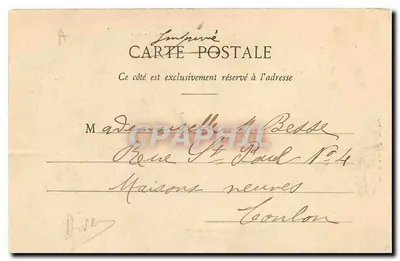 A
Imprimé
CARTE POSTALE
Ce côté est exclusivement réservé à l'adresse
Mademoiselle M Besse
Rue St Paul No 4
Maisons neuves
Toulon